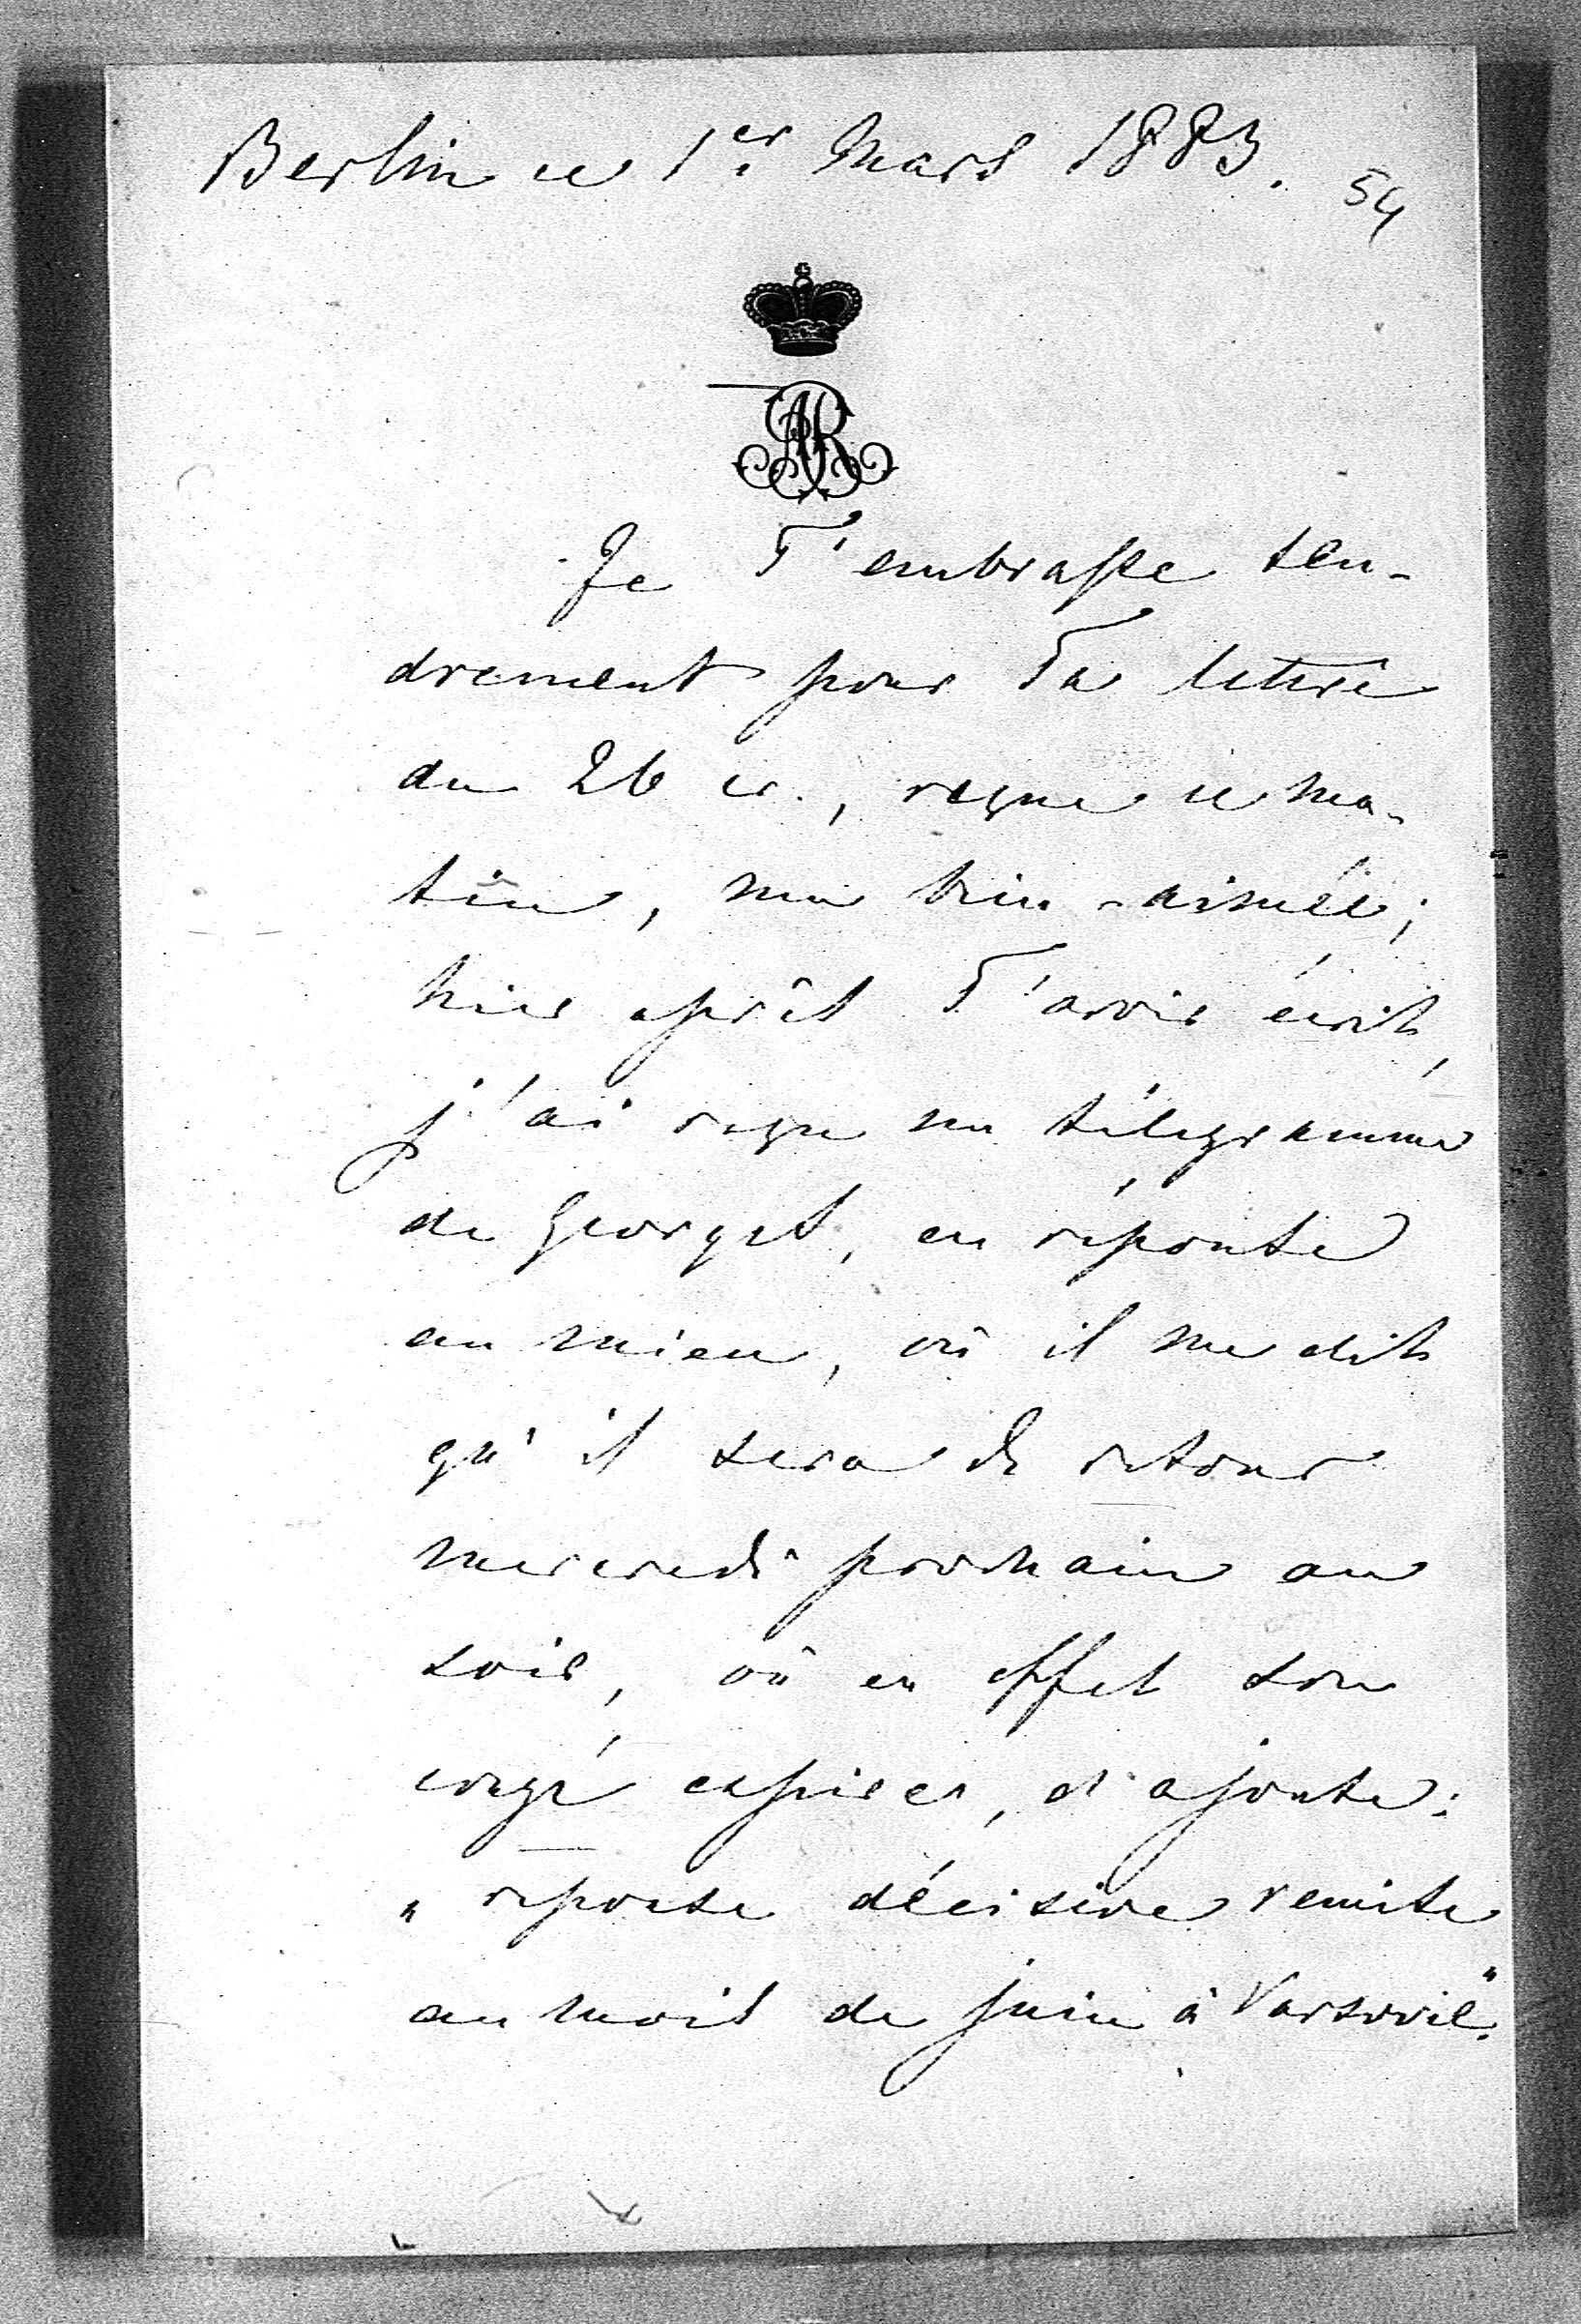 Berlin ce 1er Mars 1883.
54
AR
Je T'embrasse ten-
drement pour Ta lettre
du 26 cr., reçue ce ma-
tin, ma bien-aimée;
hier après T'avoir écrit,
j'ai reçu un télégramme
de Georges, en réponse
au mien, où il me dit
qu'il sera de retour
mercredi prochain au
soir, où en effet son
congé expire, et ajoute:
"réponse décisive remise
au mois de juin à Varsovie."